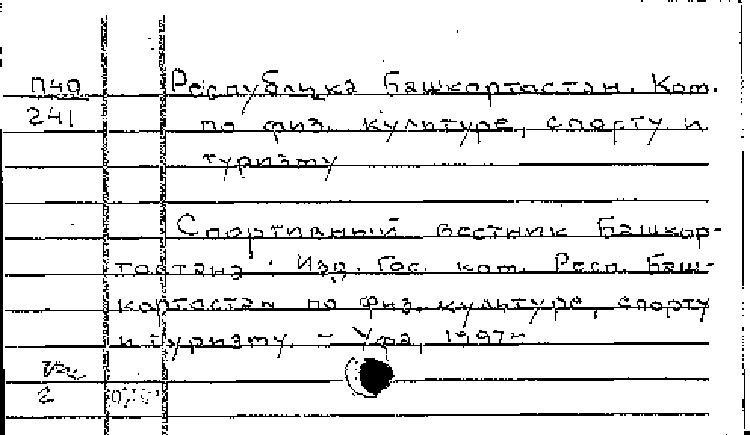 П40 Республика Башкортостан. Ком.
241 по физ. культуре, спорту и
туризму
Спортивный вестник Башкор-
тостана : Изд. Гос. ком. Респ. Баш-
кортостан по физ. культуре, спорту
и туризму. – Уфа, 1997-
2